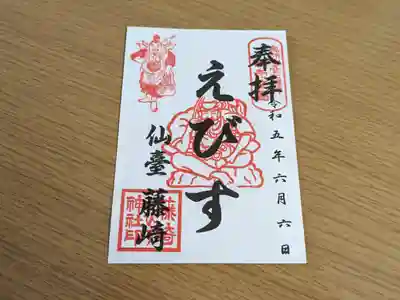 奉拝
令和五年六月六日
えびす
仙臺
藤崎
藤崎
神社印